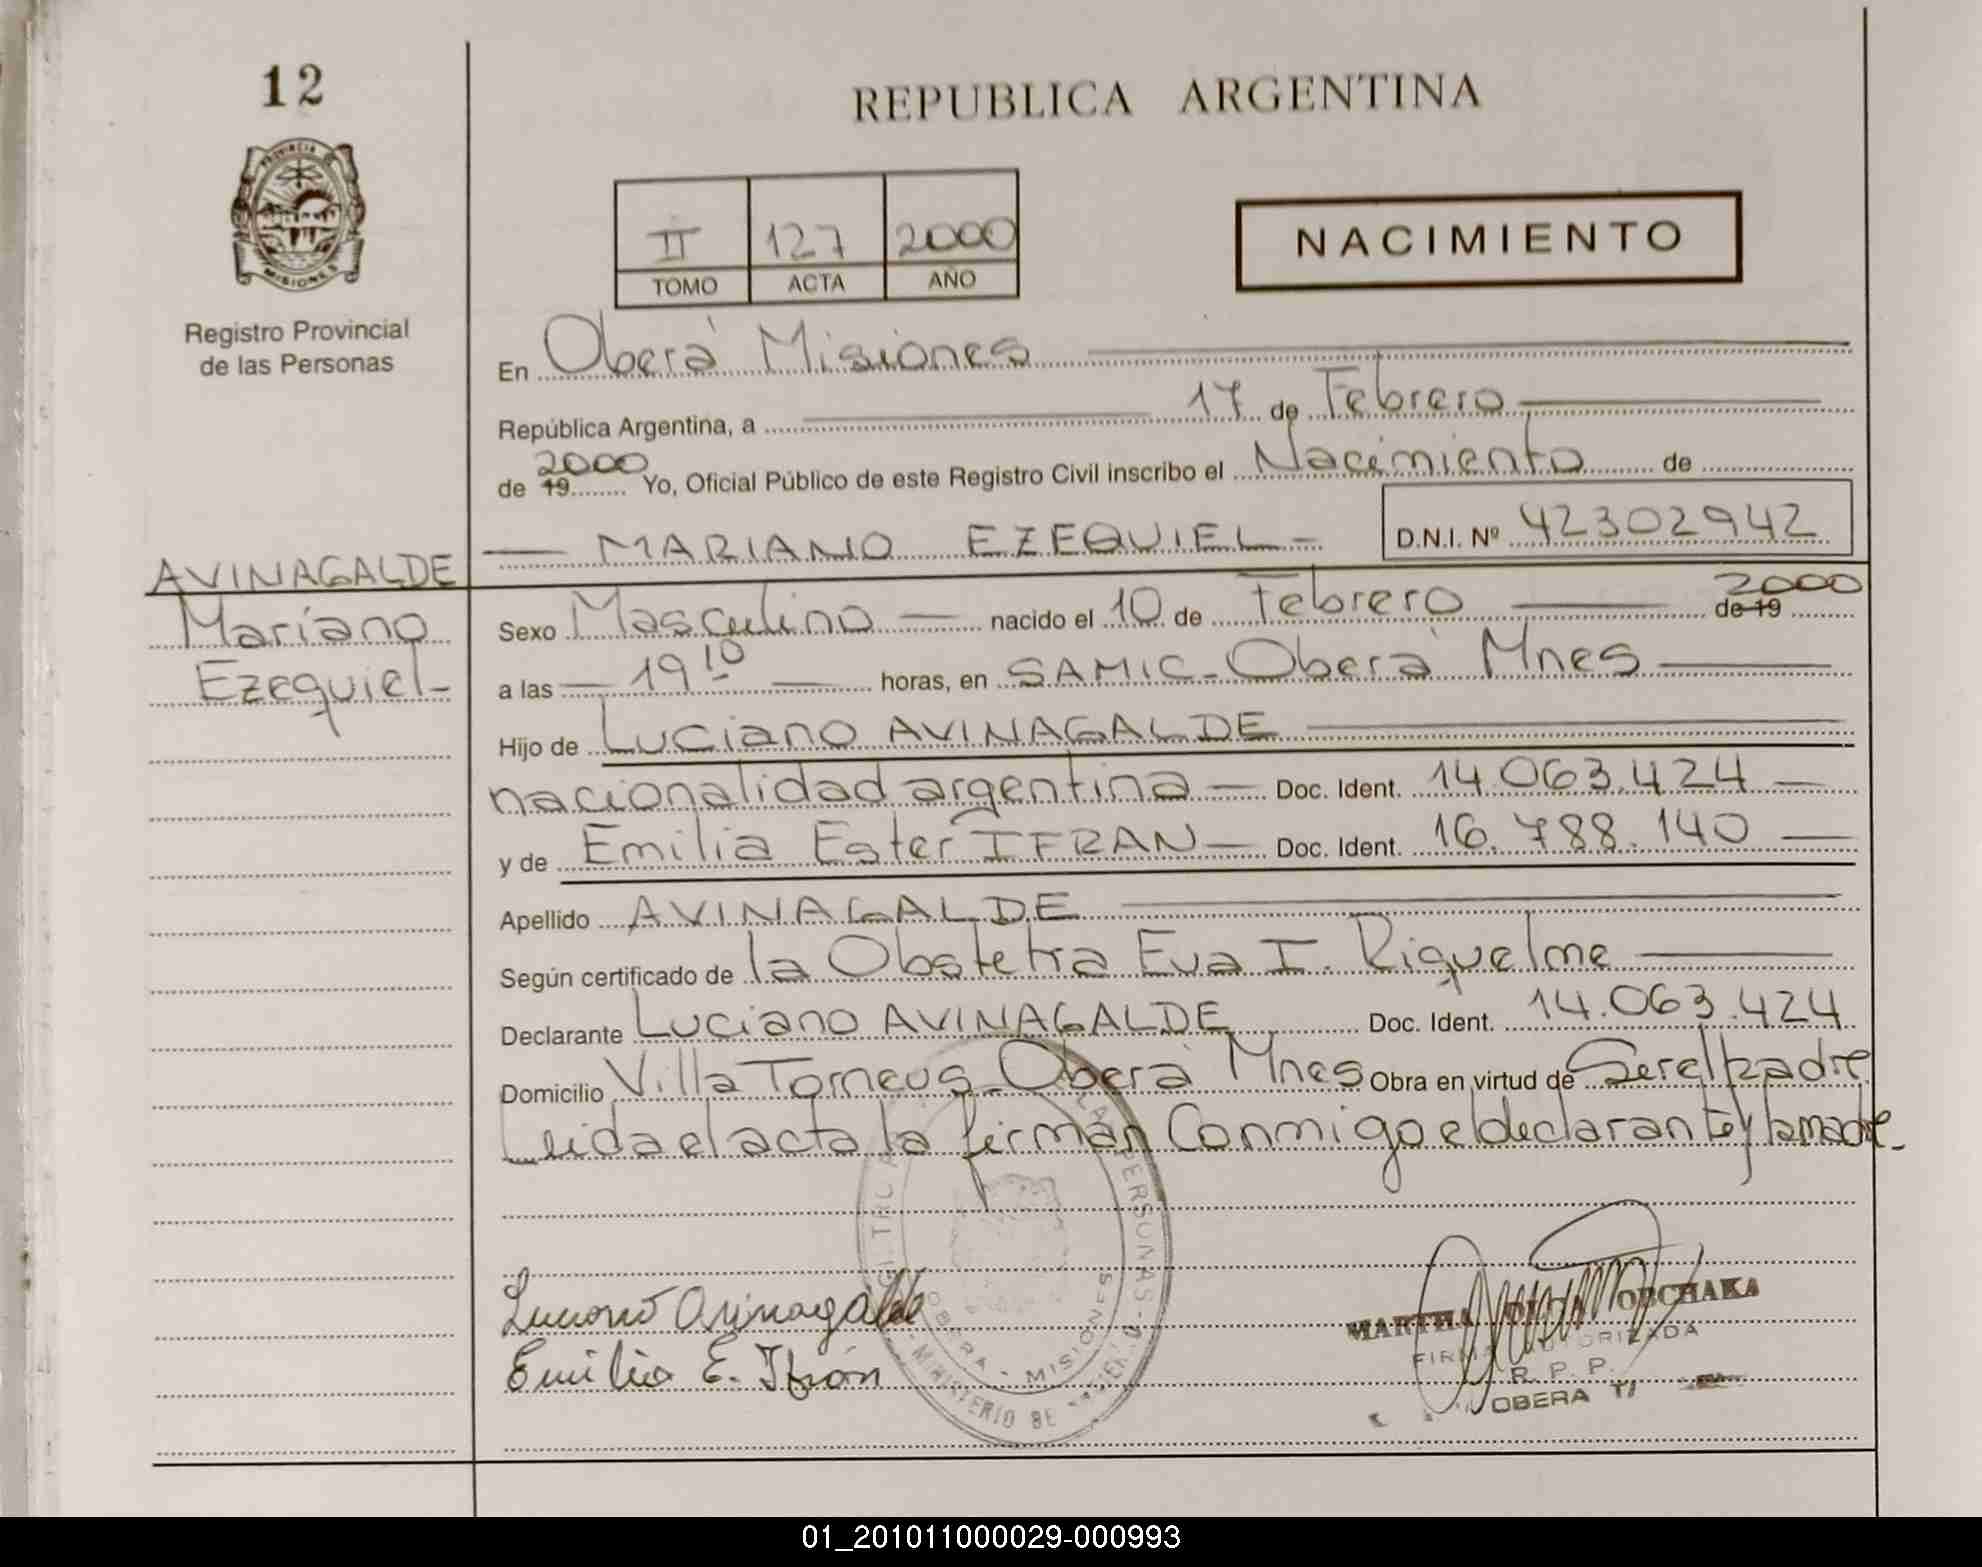 12
REPUBLICA ARGENTINA
PROVINCIA DE
MISIONES
Registro Provincial
de las Personas
II 127 2000
TOMO ACTA AÑO
NACIMIENTO
En Oberá Misiones
República Argentina, a 17 de Febrero
de 19 2000 Yo, Oficial Público de este Registro Civil inscribo el Nacimiento de
MARIANO EZEQUIEL D.N.I. Nº 42302942
AVINAGALDE
Mariano
Ezequiel
Sexo Masculino nacido el 10 de Febrero de 19 2000
a las 19 10 horas, en SAMIC - Oberá Mnes
Hijo de Luciano AVINAGALDE
nacionalidad argentina Doc. Ident. 14.063.424
y de Emilia Ester IFRAN Doc. Ident. 16.788.140
Apellido AVINAGALDE
Según certificado de la Obstetra Eva I. Riquelme
Declarante Luciano AVINAGALDE Doc. Ident. 14.063.424
Domicilio Villa Torneus - Oberá Mnes Obra en virtud de Ser el padre
Leida el acta la firman Conmigo el declarante y la madre
Luciano Avinagalde
Emilia E. Ifrán
OBERA - MISIONES
MINISTERIO DE
MARTHA OBCHAKA
FIRMA AUTORIZADA
R. P. P.
OBERA
01_201011000029-000993